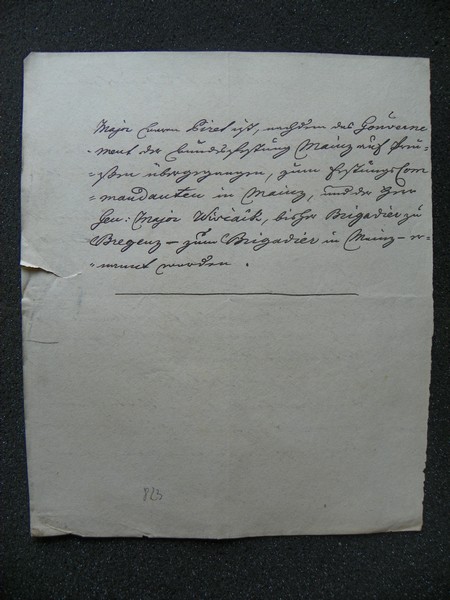 Major Baron Piret ist, nachdem das Gouverne
-ment der Bundesfestung Mainz auf Preu-
-ßen übergegangen, zum Festungs Com
-mandanten in Mainz, und der Herr
Gen: Major Wirčak, bisher Brigadier zu
Bregenz – zum Brigadier in Mainz – er-
-nannt worden .
823